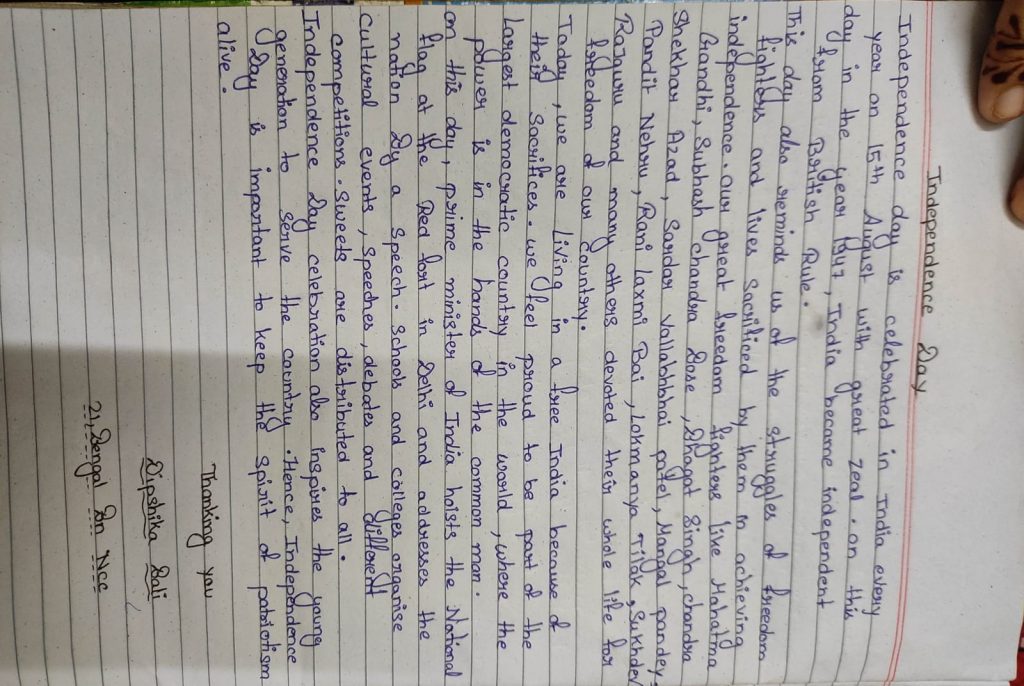 Independence Day
Independence day is celebrated in India every
year on 15th August with great zeal. on this
day in the year 1947, India became independent
from British Rule.
This day also reminds us of the struggles of freedom
fighters and lives sacrificed by them in achieving
independence. our great freedom fighters live Mahatma
Gandhi, Subhash chandra Bose, Bhagat Singh, chandra
Shekhar Azad, Sardar Vallabhbhai patel, Mangal pandey,
Pandit Nehru, Rani laxmi Bai, Lokmanya Tilak, Sukhdev
Rajguru and many others devoted their whole life for
freedom of our country.
Today, we are living in a free India because of
their sacrifices. we feel proud to be part of the
Largest democratic country in the world, where the
power is in the hands of the common man.
on this day, prime minister of India hoists the National
flag at the Red fort in Delhi and addresses the
nation By a speech. Schools and colleges organise
cultural events, speeches, debates and different
competitions. Sweets are distributed to all.
Independence Day celebration also inspires the young
generation to serve the country. Hence, Independence
Day is important to keep the spirit of patriotism
alive.
Thanking you
Dipshika Bali
21, Bengal Bn NCC